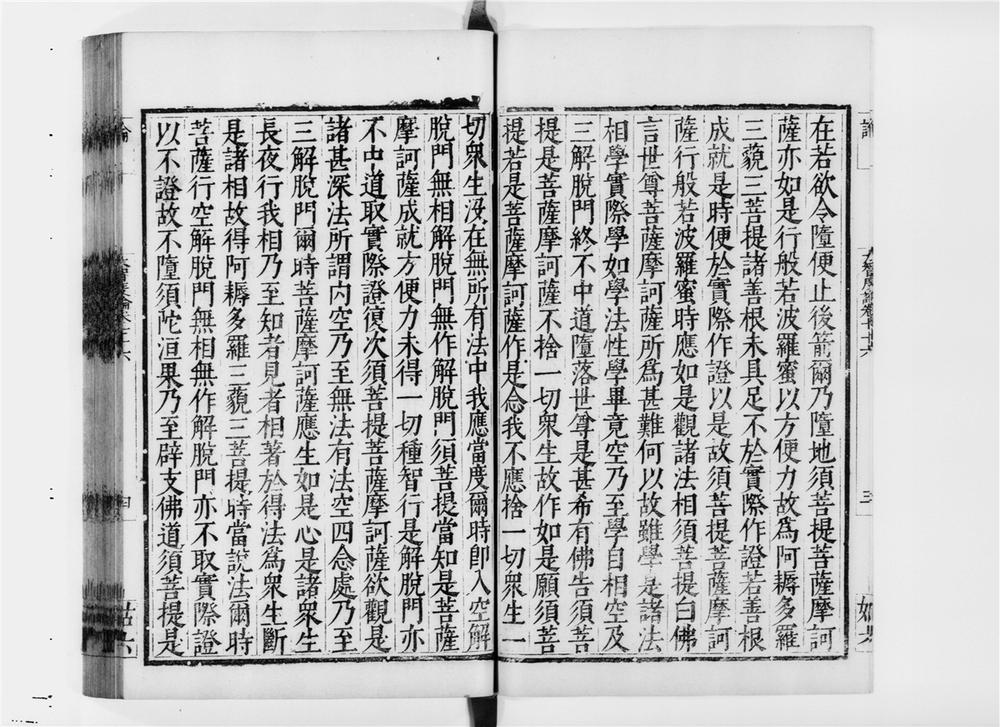 在若欲令墮便止後箭爾乃墮地須菩提菩薩摩訶
薩亦如是行般若波羅蜜以方便力故爲阿耨多羅
三藐三菩提諸善根未具足不於實際作證若善根
成就是時便於實際作證以是故須菩提菩薩摩訶
薩行般若波羅蜜時應如是觀諸法相須菩提白佛
言世尊菩薩摩訶薩所爲甚難何以故雖學是諸法
相學實際學如學法性學畢竟空乃至學自相空及
三解脫門終不中道墮落世尊是甚希有佛告須菩
提是菩薩摩訶薩不捨一切衆生故作如是願須菩
提若是菩薩摩訶薩作是念我不應捨一切衆生一
切衆生没在無所有法中我應當度爾時卽入空解
脫門無相解脫門無作解脫門須菩提當知是菩薩
摩訶薩成就方便力未得一切種智行是解脫門亦
不中道取實際證復次須菩提菩薩摩訶薩欲觀是
諸甚深法所謂内空乃至無法有法空四念處乃至
三解脫門爾時菩薩摩訶薩應生如是心是諸衆生
長夜行我相乃至知者見者相著於得法爲衆生斷
是諸相故得阿耨多羅三藐三菩提時當說法爾時
菩薩行空解脫門無相無作解脫門亦不取實際證
以不證故不墮須陀洹果乃至辟支佛道須菩提是
論
三
論
四